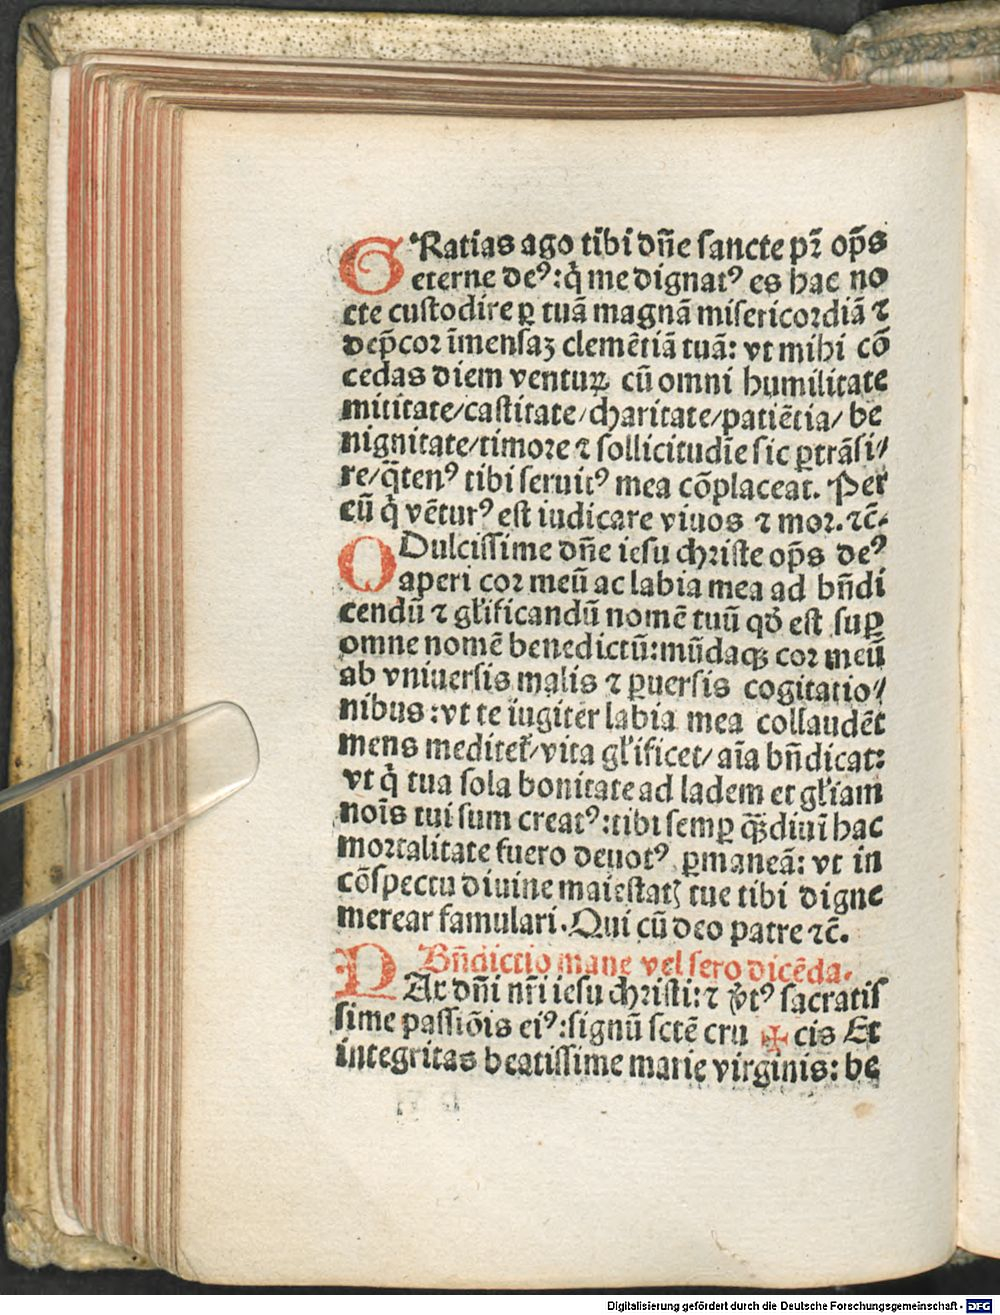 GRatias ago tibi dn̄e sancte pr̄ op̄s
eterne deꝰ: q̇ me dignatꝰ es hac no
cte custodire ꝑ tuā magnā misericordiā ⁊
dep̄cor īmensaꝫ clemētiā tuā: vt mihi cō
cedas diem venturꝝ cū omni humilitate
mititate/castitate/charitate/patiētia/ be
nignitate/timore ⁊ sollicitudīe sic ꝑtrāsi⸗
re/q̄tenꝰ tibi seruitꝰ mea cōplaceat. Per
eū q̇ vēturꝰ est iudicare viuos ⁊ mor. ⁊c̄.
O Dulcissime dn̄e iesu christe op̄s deꝰ
aperi cor meū ac labia mea ad bn̄di
cendū ⁊ gl̄ificandū nomē tuū qđ est suꝑ
omne nomē benedictū: mūdaqꝫ cor meū
ab vniuersis malis ⁊ ꝑuersis cogitatio⸗
nibus: vt te iugiter labia mea collaudēt
mens meditet̄/vita gl̄ificet/ aīa bn̄dicat:
vt q̇ tua sola bonitate ad ladem et gl̄iam
noīs tui sum creatꝰ: tibi semꝑ qꝫ̄diu ī hac
mortalitate fuero deuotꝰ ꝑmaneā: vt in
cōspectu diuine maiestatꝭ tue tibi digne
merear famulari. Qui cū deo patre ⁊c̄.
Bn̄dictio mane vel sero dicēda.
PAx dn̄i nr̄i iesu christi: ⁊ v̇tꝰ sacratis
sime passiōis eiꝰ: signū sctē cru ✠ cis Et
integritas beatissime marie virginis: be
Digitalisierung gefördert durch die Deutsche Forschungsgemeinschaft - DFG